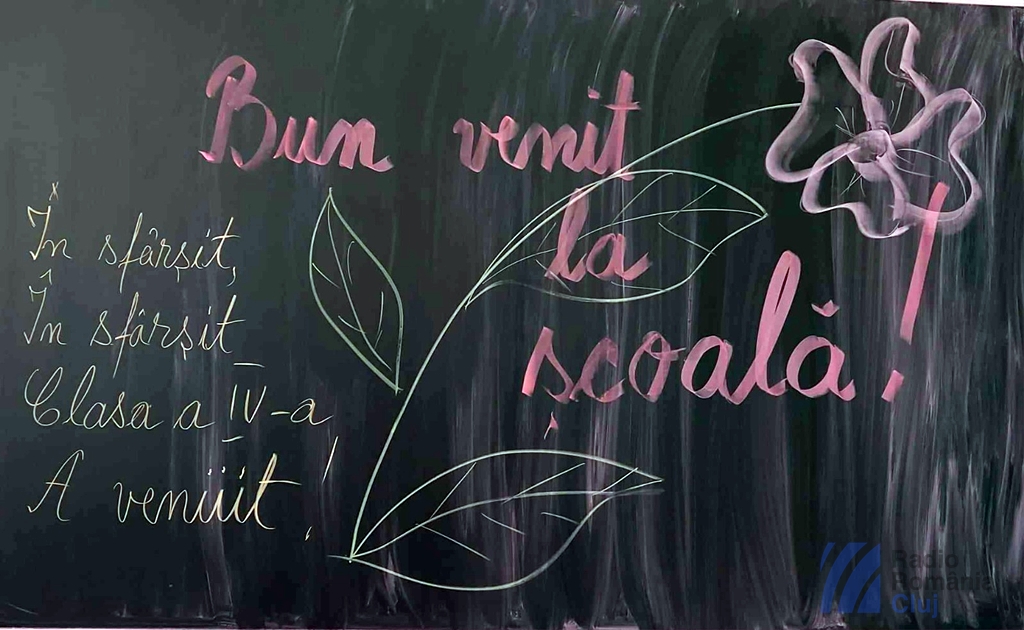 Bun venit
la
școală!
În sfârșit,
În sfârșit
Clasa a IV-a
A veniiit!
Radio
România
Cluj